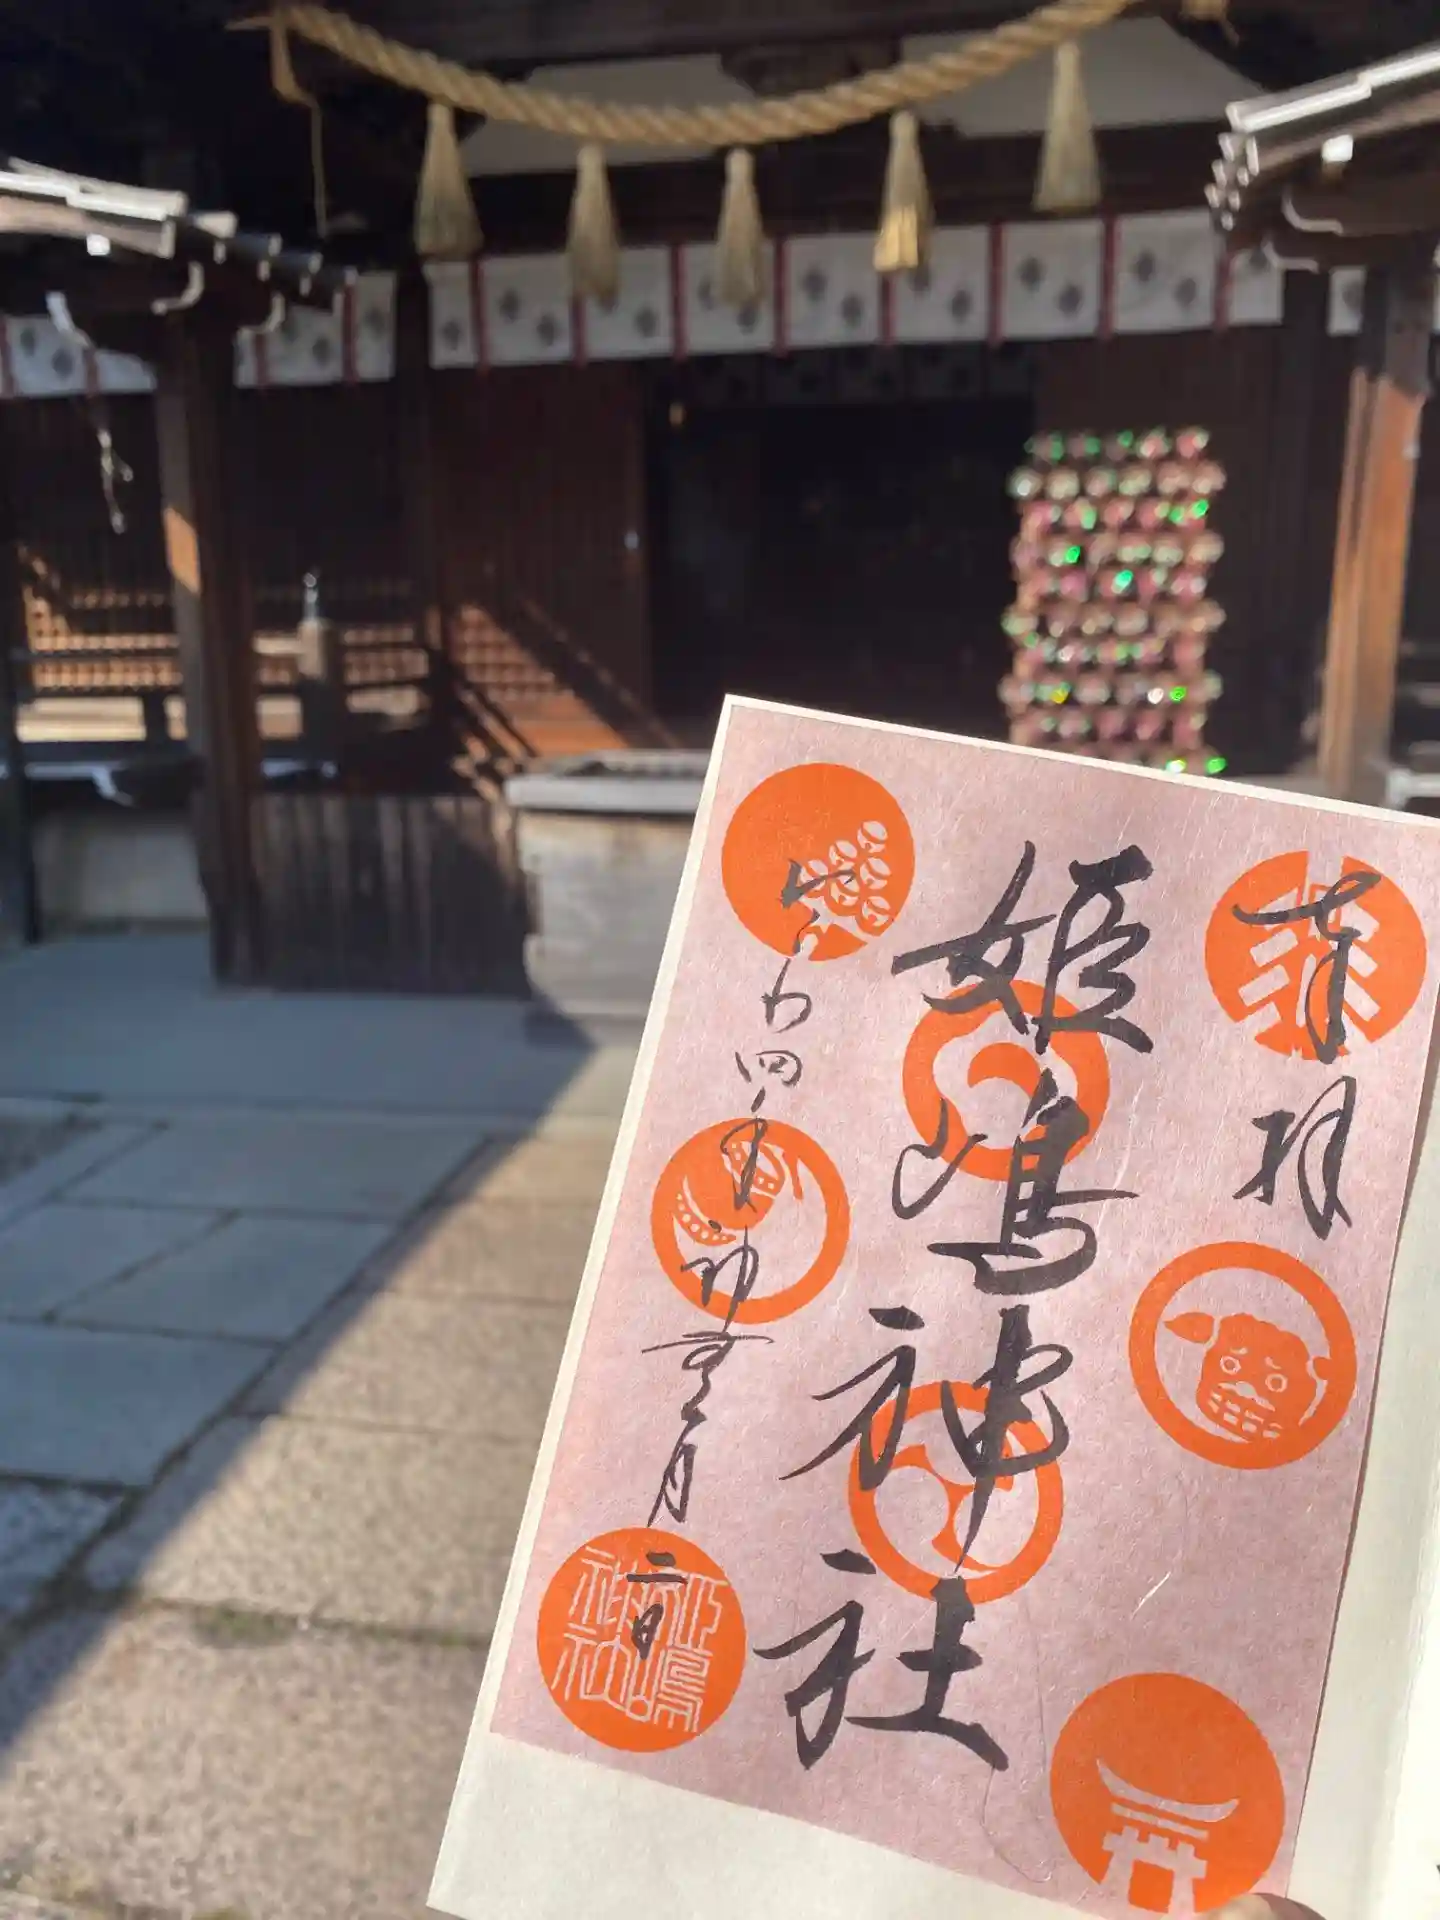 奉拝
姫嶋神社
令わ四年神無月二日
姫嶋神社